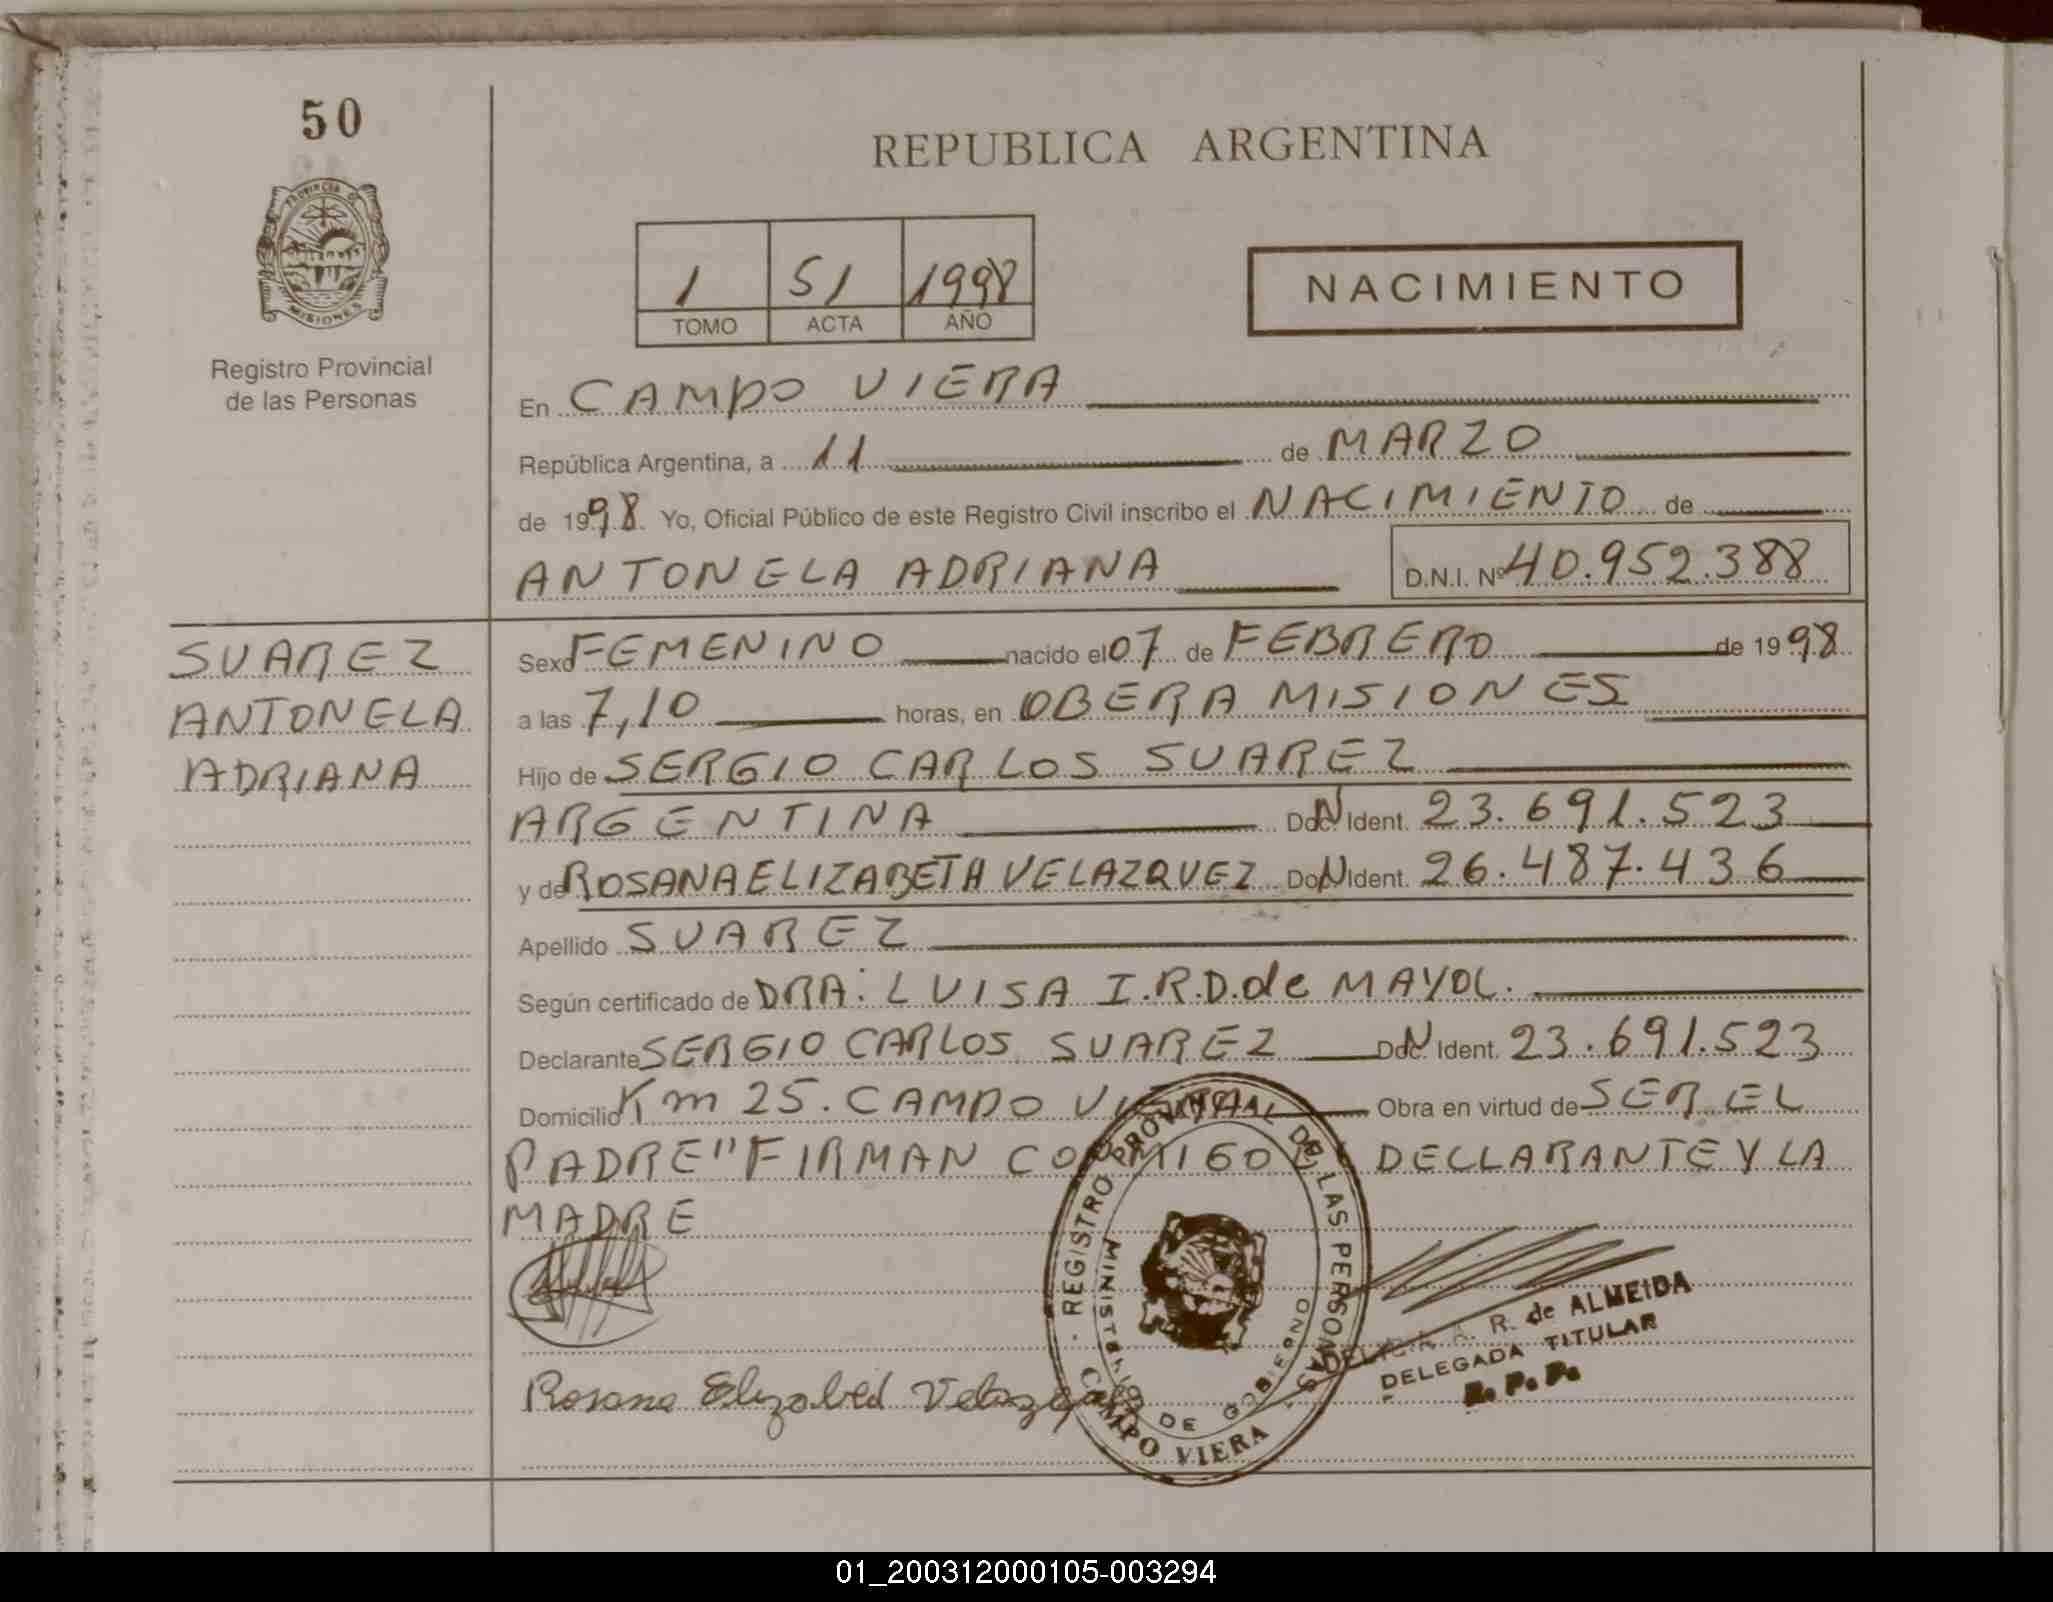 50
PROVINCIA DE
MISIONES
Registro Provincial
de las Personas
REPUBLICA ARGENTINA
1 51 1998
TOMO ACTA AÑO
NACIMIENTO
En CAMPO VIERA
República Argentina, a 11 de MARZO
de 1998. Yo, Oficial Público de este Registro Civil inscribo el NACIMIENTO de
ANTONELA ADRIANA D.N.I. Nº 40.952.388
SUAREZ
ANTONELA
ADRIANA
Sexo FEMENINO nacido el 07 de FEBRERO de 1998
a las 7,10 horas, en OBERA MISIONES
Hijo de SERGIO CARLOS SUAREZ
ARGENTINA Doc. N Ident. 23.691.523
y de ROSANA ELIZABETH VELAZQUEZ Doc. N Ident. 26.487.436
Apellido SUAREZ
Según certificado de DRA: LUISA I.R.D. de MAYOL.
Declarante SERGIO CARLOS SUAREZ Doc. N Ident. 23.691.523
Domicilio Km 25. CAMPO VIERA Obra en virtud de SER EL
PADRE" FIRMAN CONMIGO EL DECLARANTE Y LA
MADRE
Rosana Elizabed Velazquez
REGISTRO PROVINCIAL DE LAS PERSONAS
MINISTERIO DE GOBIERNO
CAMPO VIERA
A. R. de ALMEIDA
DELEGADA TITULAR
R. P. P.
01_200312000105-003294